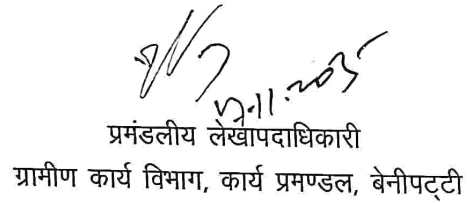 प्रमंडलीय लेखापदाधिकारी
ग्रामीण कार्य विभाग, कार्य प्रमण्डल, बेनीपट्टी